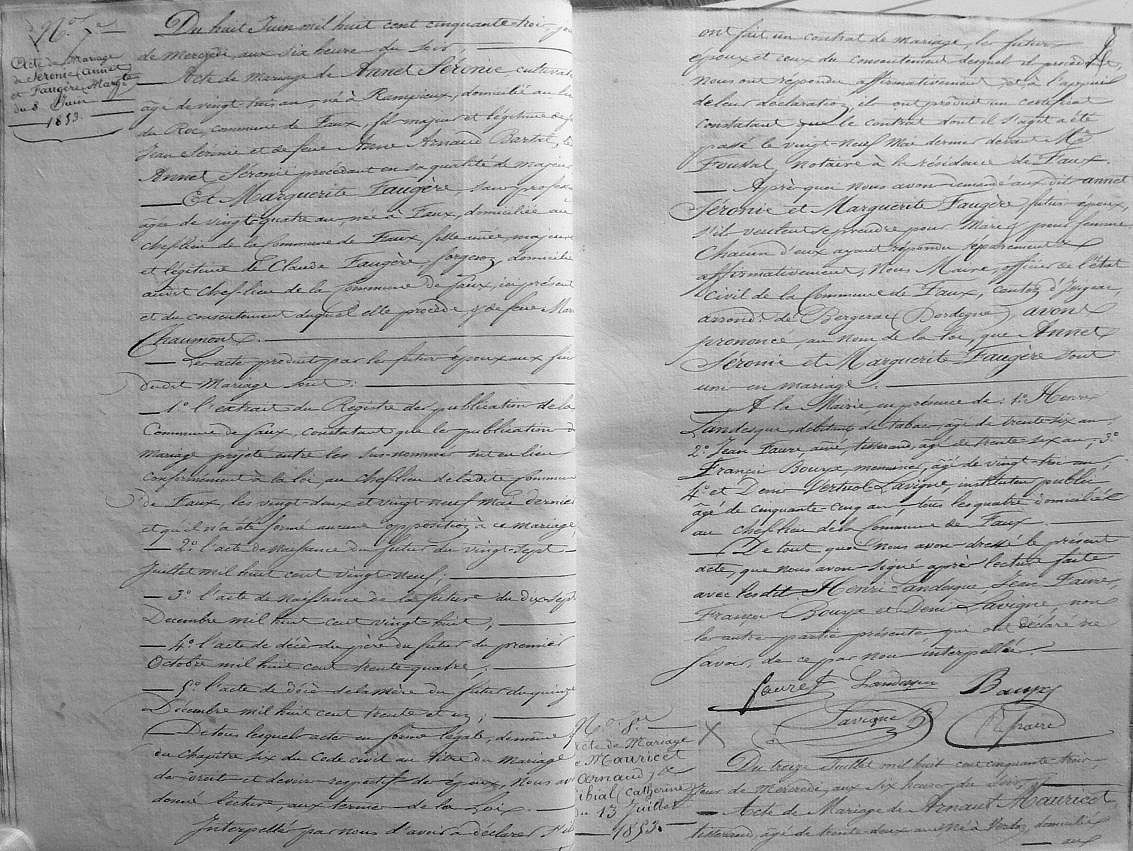 N.º 7
Acte de Mariage
de Séronie Annet
et Faugère Margte
du 8 Juin
1853.
Du huit Juin mil huit cent cinquante trois, jour
de Mercredi, aux six heures du Soir
Acte de mariage de Annet Séronie, cultivateur
agé de vingt trois ans, né à Rampieux, domicilié au lieu
du Roc, commune de Faux, fils majeur et légitime de
Jean Séronie et de feue Anne Arnaud Barbal, le
Annet Séronie procédant en sa qualité de majeur
Et Marguerite Faugère, sans profession
agée de vingt-quatre ans, née à Faux, domiciliée au
chef lieu de la Commune de Faux, fille ainée, majeure
et légitime de Claude Faugère, forgeron, domicilié
audit chef-lieu de la Commune de Faux, ici présent
et du consentement duquel elle procède & de feue Marie
Chaumont.
Les actes produits par le futur époux aux fins
dudit Mariage sont :
1.º l'extrait du Registre des publications de la
Commune de Faux, constatant que les publications du
mariage projeté entre les sus-nommés ont eu lieu
conformément à la loi, au chef lieu de ladite commune
de Faux, les vingt-deux et vingt neuf Mai dernier
et qu'il n'a été formé aucune opposition à ce mariage
2.º l'acte de Naissance du futur du vingt-sept
Juillet mil huit cent vingt-neuf ;
3.º l'acte de Naissance de la future du dix-sept
Décembre mil huit cent vingt huit ;
4.º l'acte de décès du père du futur du premier
Octobre mil huit cent trente-quatre ;
5.º l'acte de décès de la mère du futur du quinze
Décembre mil huit cent trente et un ;
De tous lesquels actes en forme légale, de même
du chapitre six du Code civil au titre du Mariage
des droits et devoirs respectifs des époux, Nous avons
donné lecture, aux termes de la Loi.
Interpellés par nous d'avoir à déclarer s'ils
ont fait un contrat de mariage, les futurs
époux et ceux du consentement desquels ils procèdent,
nous ont répondu affirmativement et à l'appui
de leur déclaration, ils ont produit un certificat
constatant que le contrat dont il s'agit a été
passé le vingt-neuf Mai dernier devant Me
Foussal, notaire à la résidence de Faux.
Après quoi nous avons demandé aux dits Annet
Séronie et Marguerite Faugère, futurs époux,
s'ils veulent se prendre pour Mari & pour femme
Chacun d'eux ayant répondu séparément &
affirmativement, Nous Maire, officier de l'état
civil de la Commune de Faux, Canton d'Issigeac,
arrondt de Bergerac (Dordogne), avons
prononcé au nom de la Loi, que Annet
Séronie et Marguerite Faugère sont
unis en mariage.
A la Mairie en présence de : 1.º Henri
Landesque, débitant de tabac, agé de trente-six ans,
2.º Jean Faure, ainé, tisserand, agé de trente-six ans, 3.º
François Bouyx, menuisier, agé de vingt-trois ans,
4.º et Denis Vertuol-Lavigne, instituteur public,
agé de cinquante-cinq ans, tous les quatre domiciliés
au chef-lieu de la Commune de Faux.
De tout quoi nous avons dressé le présent
acte, que nous avons signé après lecture faite
avec lesdits Henri Landesque, Jean Faure,
François Bouyx et Denis Lavigne, non
les autres parties présentes qui ont déclaré ne
savoir, de ce par nous interpellés.
Faure Landesque Bouyx
Lavigne
N.º 8
Acte de Mariage
de Mauricet
Arnaud &
Vibial, Catherine
du 13 Juillet
1853.
Du treize Juillet mil huit cent cinquante trois
jour de Mercredi, aux six heures du Soir,
Acte de Mariage de Arnaud Mauricet,
tisserand, agé de trente-deux ans, né à Verdon, domicilié
aux